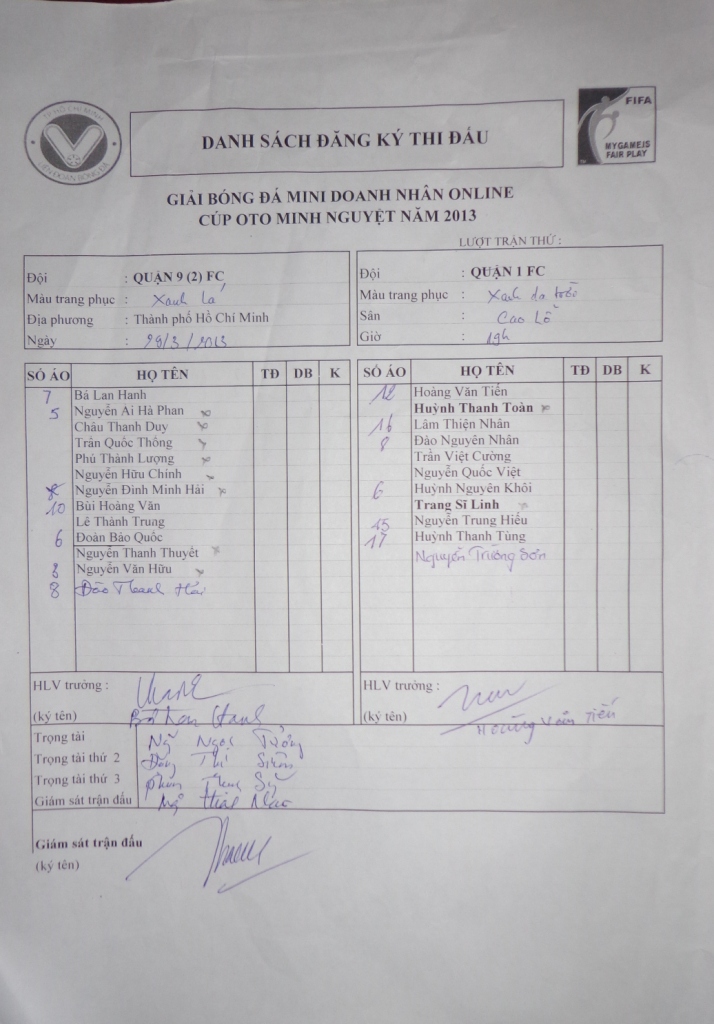 TP HỒ CHÍ MINH
LIÊN ĐOÀN BÓNG ĐÁ
DANH SÁCH ĐĂNG KÝ THI ĐẤU
FIFA
MY GAME IS
FAIR PLAY
GIẢI BÓNG ĐÁ MINI DOANH NHÂN ONLINE
CÚP OTO MINH NGUYỆT NĂM 2013
LƯỢT TRẬN THỨ :
Đội : QUẬN 9 (2) FC
Màu trang phục : Xanh lá
Địa phương : Thành phố Hồ Chí Minh
Ngày : 28/3/2013
Đội : QUẬN 1 FC
Màu trang phục : Xanh da trời
Sân : Cao Lỗ
Giờ : 19h
SỐ ÁO HỌ TÊN TĐ DB K
7 Bá Lan Hanh
5 Nguyễn Ai Hà Phan
Châu Thanh Duy
Trần Quốc Thống
Phù Thành Lượng
Nguyễn Hữu Chinh
Nguyễn Đình Minh Hải
10 Bùi Hoàng Văn
Lê Thành Trung
6 Đoàn Bảo Quốc
Nguyễn Thanh Thuyết
8 Nguyễn Văn Hữu
8 Đào Thanh Hải
SỐ ÁO HỌ TÊN TĐ DB K
12 Hoàng Văn Tiến
Huỳnh Thanh Toàn
16 Lâm Thiện Nhân
8 Đào Nguyên Nhân
Trần Việt Cường
Nguyễn Quốc Việt
6 Huỳnh Nguyên Khôi
Trang Sĩ Linh
15 Nguyễn Trung Hiếu
17 Huỳnh Thanh Tùng
Nguyễn Trường Sơn
HLV trưởng :
(ký tên) Bá Lan Hanh
HLV trưởng :
(ký tên) Hoàng Văn Tiến
Trọng tài Ngọc
Trọng tài thứ 2 Thi
Trọng tài thứ 3
Giám sát trận đấu
Giám sát trận đấu
(ký tên)